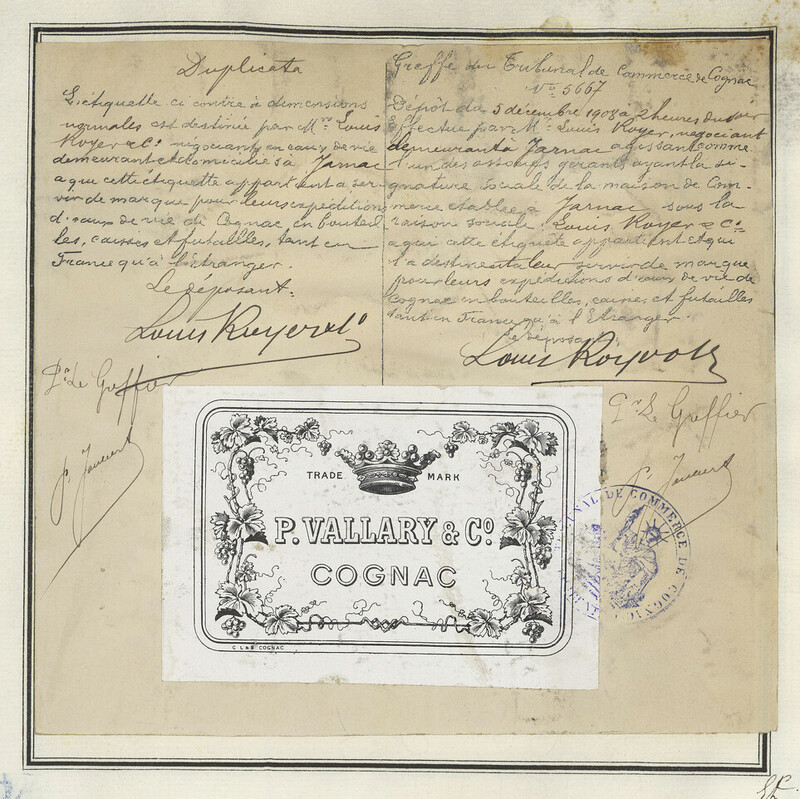 Duplicata
L'étiquette ci contre à dimensions
normales est destinée par Mrs Louis
Royer & Co negociants en eaux de vie
demeurant et domiciliés à Jarnac
a qui cette étiquette appartient a ser-
vir de marque pour leurs expéditions
d'eaux de vie de Cognac en bouteil
les, caisses et futailles, tant en
France qu'à l'étranger.
Le déposant:
Louis Royer & Co
Pr Le Greffier
Greffe du Tribunal de Commerce de Cognac
No 5667
Dépôt du 5 décembre 1908 a 2 heures du soir
Effectué par Mr Louis Royer, negociant
demeurant à Jarnac agissant comme
l'un des associés gérants ayant la si-
gnature sociale de la maison de Com-
merce etablie à Jarnac sous la
raison sociale: Louis Royer & Co
a qui cette étiquette appartient et qui
l'a destine à leur servir de marque
pour leurs expéditions d'eaux de vie de
Cognac en bouteilles, caisses, et futailles
tant en France qu'à l'Etranger.
Le déposant
Louis Royer & Co
Pr Le Greffier
TRADE MARK
P. VALLARY & Co.
COGNAC
C. L & B COGNAC
TRIBUNAL DE COMMERCE DE COGNAC